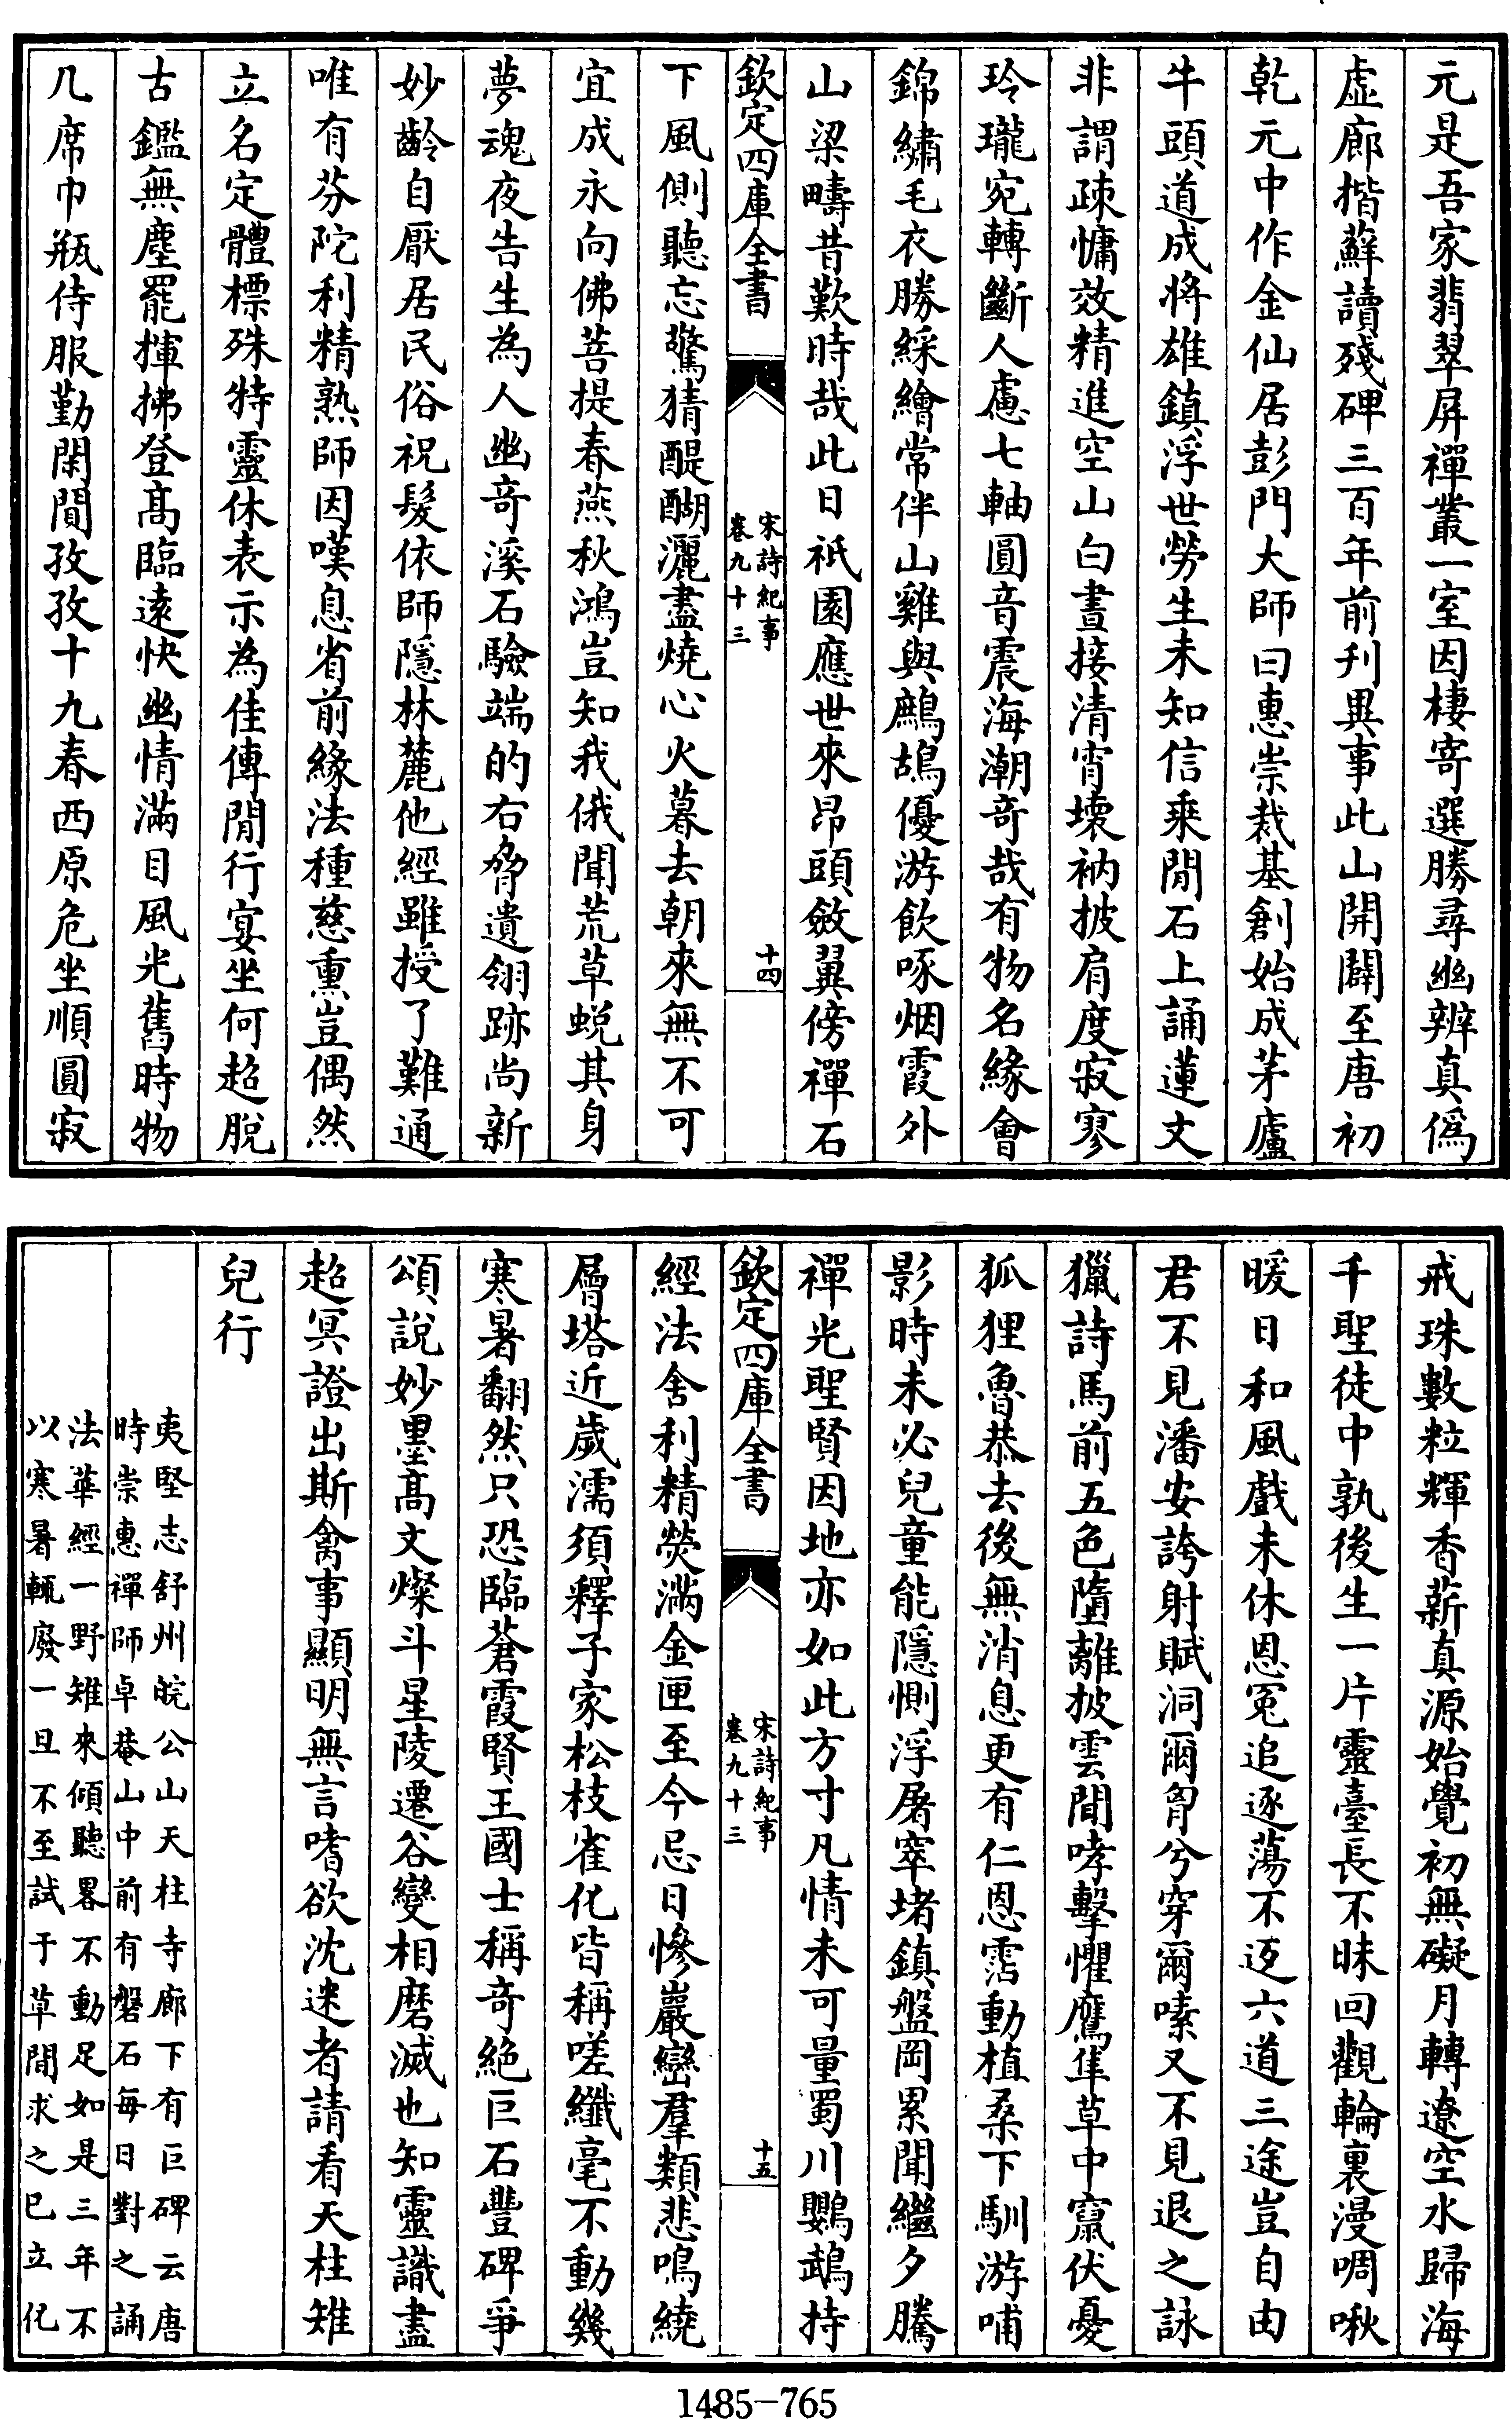 元是吾家翡翠屏禪叢一室因棲寄選勝尋幽辨真僞
虛廊揩蘚讀殘碑三百年前刋異事此山開闢至唐初
乾元中作金仙居彭門大師曰惠崇裁基創始成茅廬
牛頭道成將雄鎮浮世勞生未知信乘閒石上誦蓮文
非謂疎慵效精進空山白晝接清宵壞衲披肩度寂寥
玲瓏宛轉斷人慮七軸圓音震海潮奇哉有物名緣會
錦繡毛衣勝綵繪常伴山雞與鷓鴣優游飲啄烟霞外
山梁疇昔歎時哉此日祇園應世來昂頭斂翼傍禪石
欽定四庫全書
宋詩紀事
卷九十三
十四
下風側聽忘驚猜醍醐灑盡燒心火暮去朝來無不可
宜成永向佛菩提春燕秋鴻豈知我俄聞荒草蛻其身
夢魂夜告生為人幽奇溪石驗端的右脅遺翎跡尚新
妙齡自厭居民俗祝髮依師隱林麓他經雖授了難通
唯有芬陀利精熟師因嘆息省前緣法種慈熏豈偶然
立名定體標殊特靈休表示為佳傳閒行宴坐何超脫
古鑑無塵罷揮拂登髙臨遠快幽情滿目風光舊時物
几席巾瓶侍服勤閑閒孜孜十九春西原危坐順圓寂
戒珠數粒輝香薪真源始覺初無礙月轉遼空水歸海
千聖徒中孰後生一片靈臺長不昧回觀輪裏漫啁啾
暖日和風戲未休恩寃追逐蕩不返六道三途豈自由
君不見潘安誇射賦洞爾胷兮穿爾嗉又不見退之詠
獵詩馬前五色墮離披雲間哮擊懼鷹隼草中竄伏憂
狐狸魯恭去後無消息更有仁恩霑動植桑下馴游哺
影時未必兒童能隱惻浮屠窣堵鎮盤岡累聞繼夕騰
禪光聖賢因地亦如此方寸凡情未可量蜀川鸚鵡持
欽定四庫全書
宋詩紀事
卷九十三
十五
經法舍利精熒滿金匣至今忌日慘巖巒羣類悲鳴繞
層塔近歲濡須釋子家松枝雀化皆稱嗟纖毫不動幾
寒暑翻然只恐臨蒼霞賢王國士稱奇絶巨石豐碑爭
頌說妙墨髙文燦斗星陵遷谷變相磨滅也知靈識盡
超冥證出斯禽事顯明無言嗜欲沈迷者請看天柱雉
兒行
夷堅志舒州皖公山天柱寺廊下有巨碑云唐
時崇惠禪師卓菴山中前有磐石每日對之誦
法華經一野雉來傾聽畧不動足如是三年不
以寒暑輒廢一旦不至試于草間求之已立化
1485-765